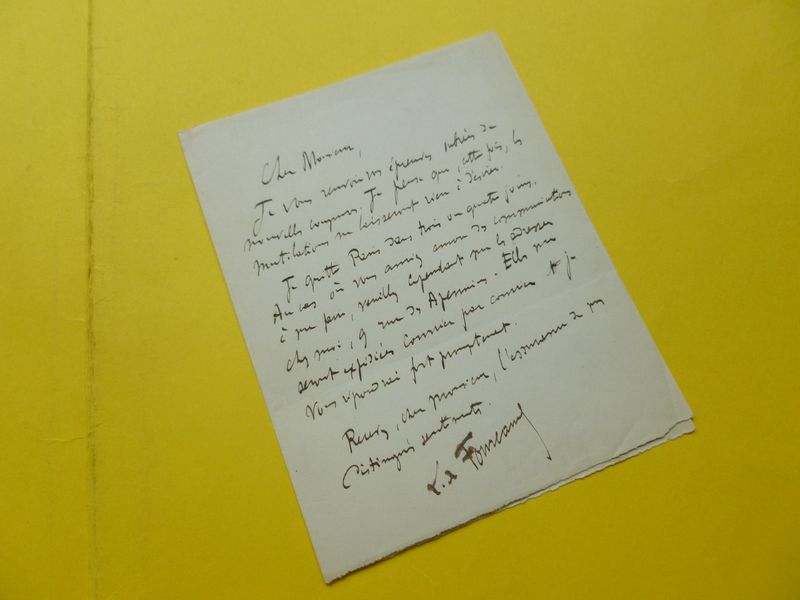 Cher Monsieur,
Je vous renvoie vos épreuves de
nouvelles coupures. Je pense que, cette fois, les
mutilations ne laisseront rien à désirer.
Je quitte Paris dans trois ou quatre jours.
Au cas où vous auriez encore des communications
à me faire, veuillez cependant me les adresser
chez moi, 9 rue des Apennins. Elles me
seront expédiées courrier par courrier et je
vous répondrai fort promptement.
Recevez, cher monsieur, l'assurance de mes
distingués sentiments.
L. de Fourcaud